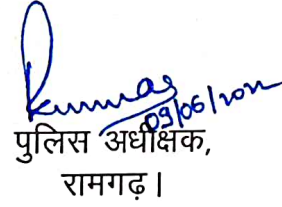 Kumar
09/06/2022
पुलिस अधीक्षक,
रामगढ़।